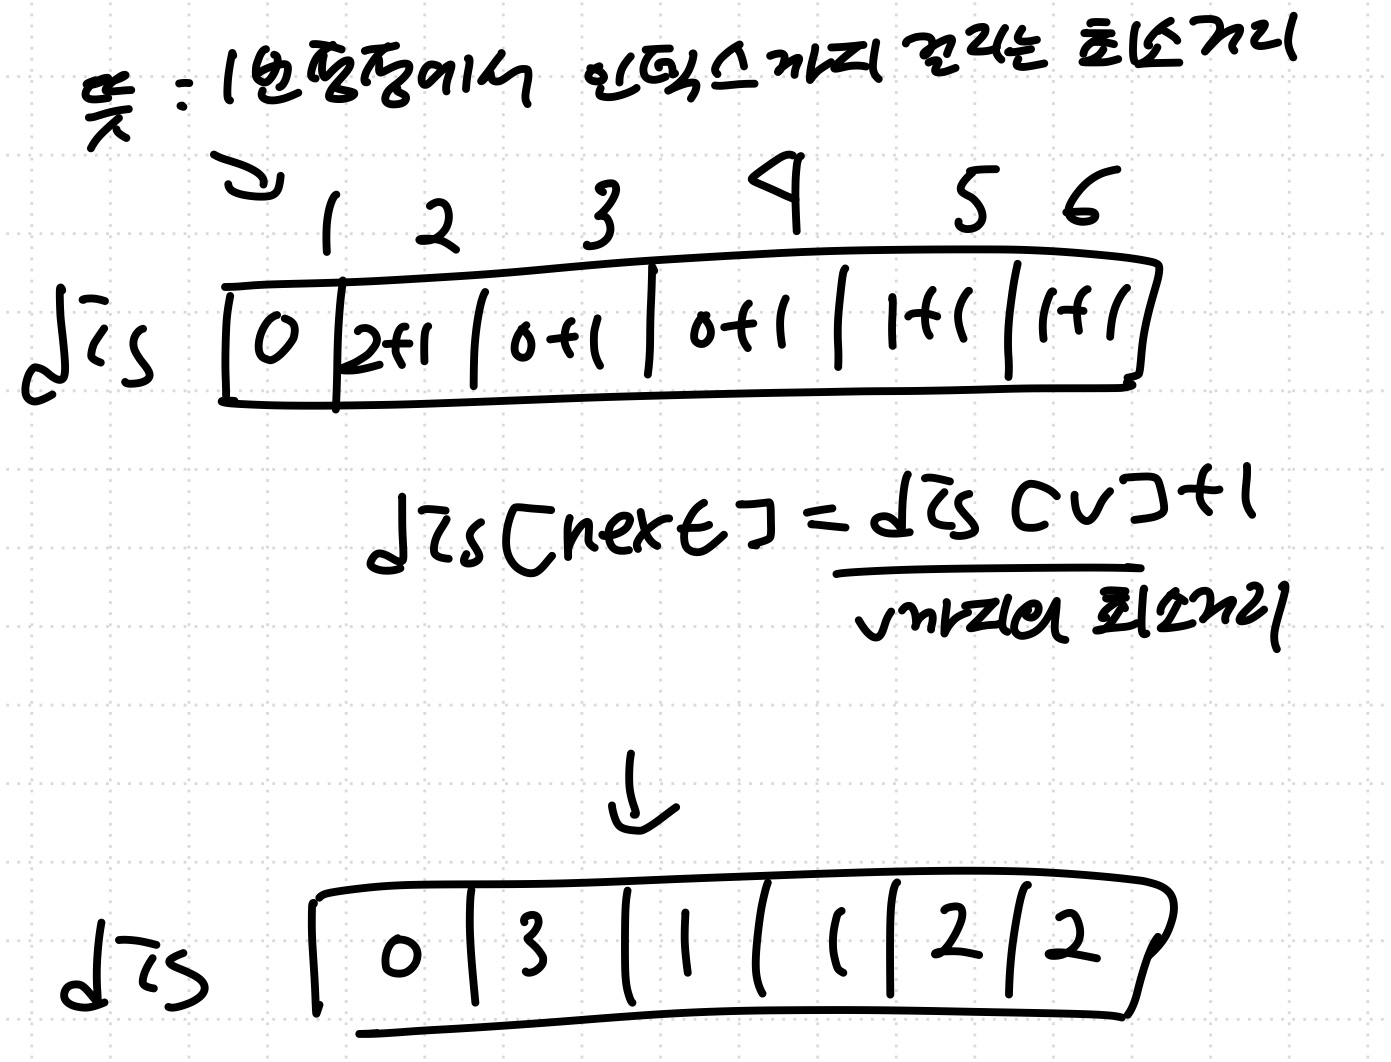 뜻 : 1번정점에서 인덱스까지 걸리는 최소거리
1 2 3 4 5 6
dis 0 2+1 0+1 0+1 1+1 1+1
dis[next] = dis[v]+1
v까지의 최소거리
dis 0 3 1 1 2 2